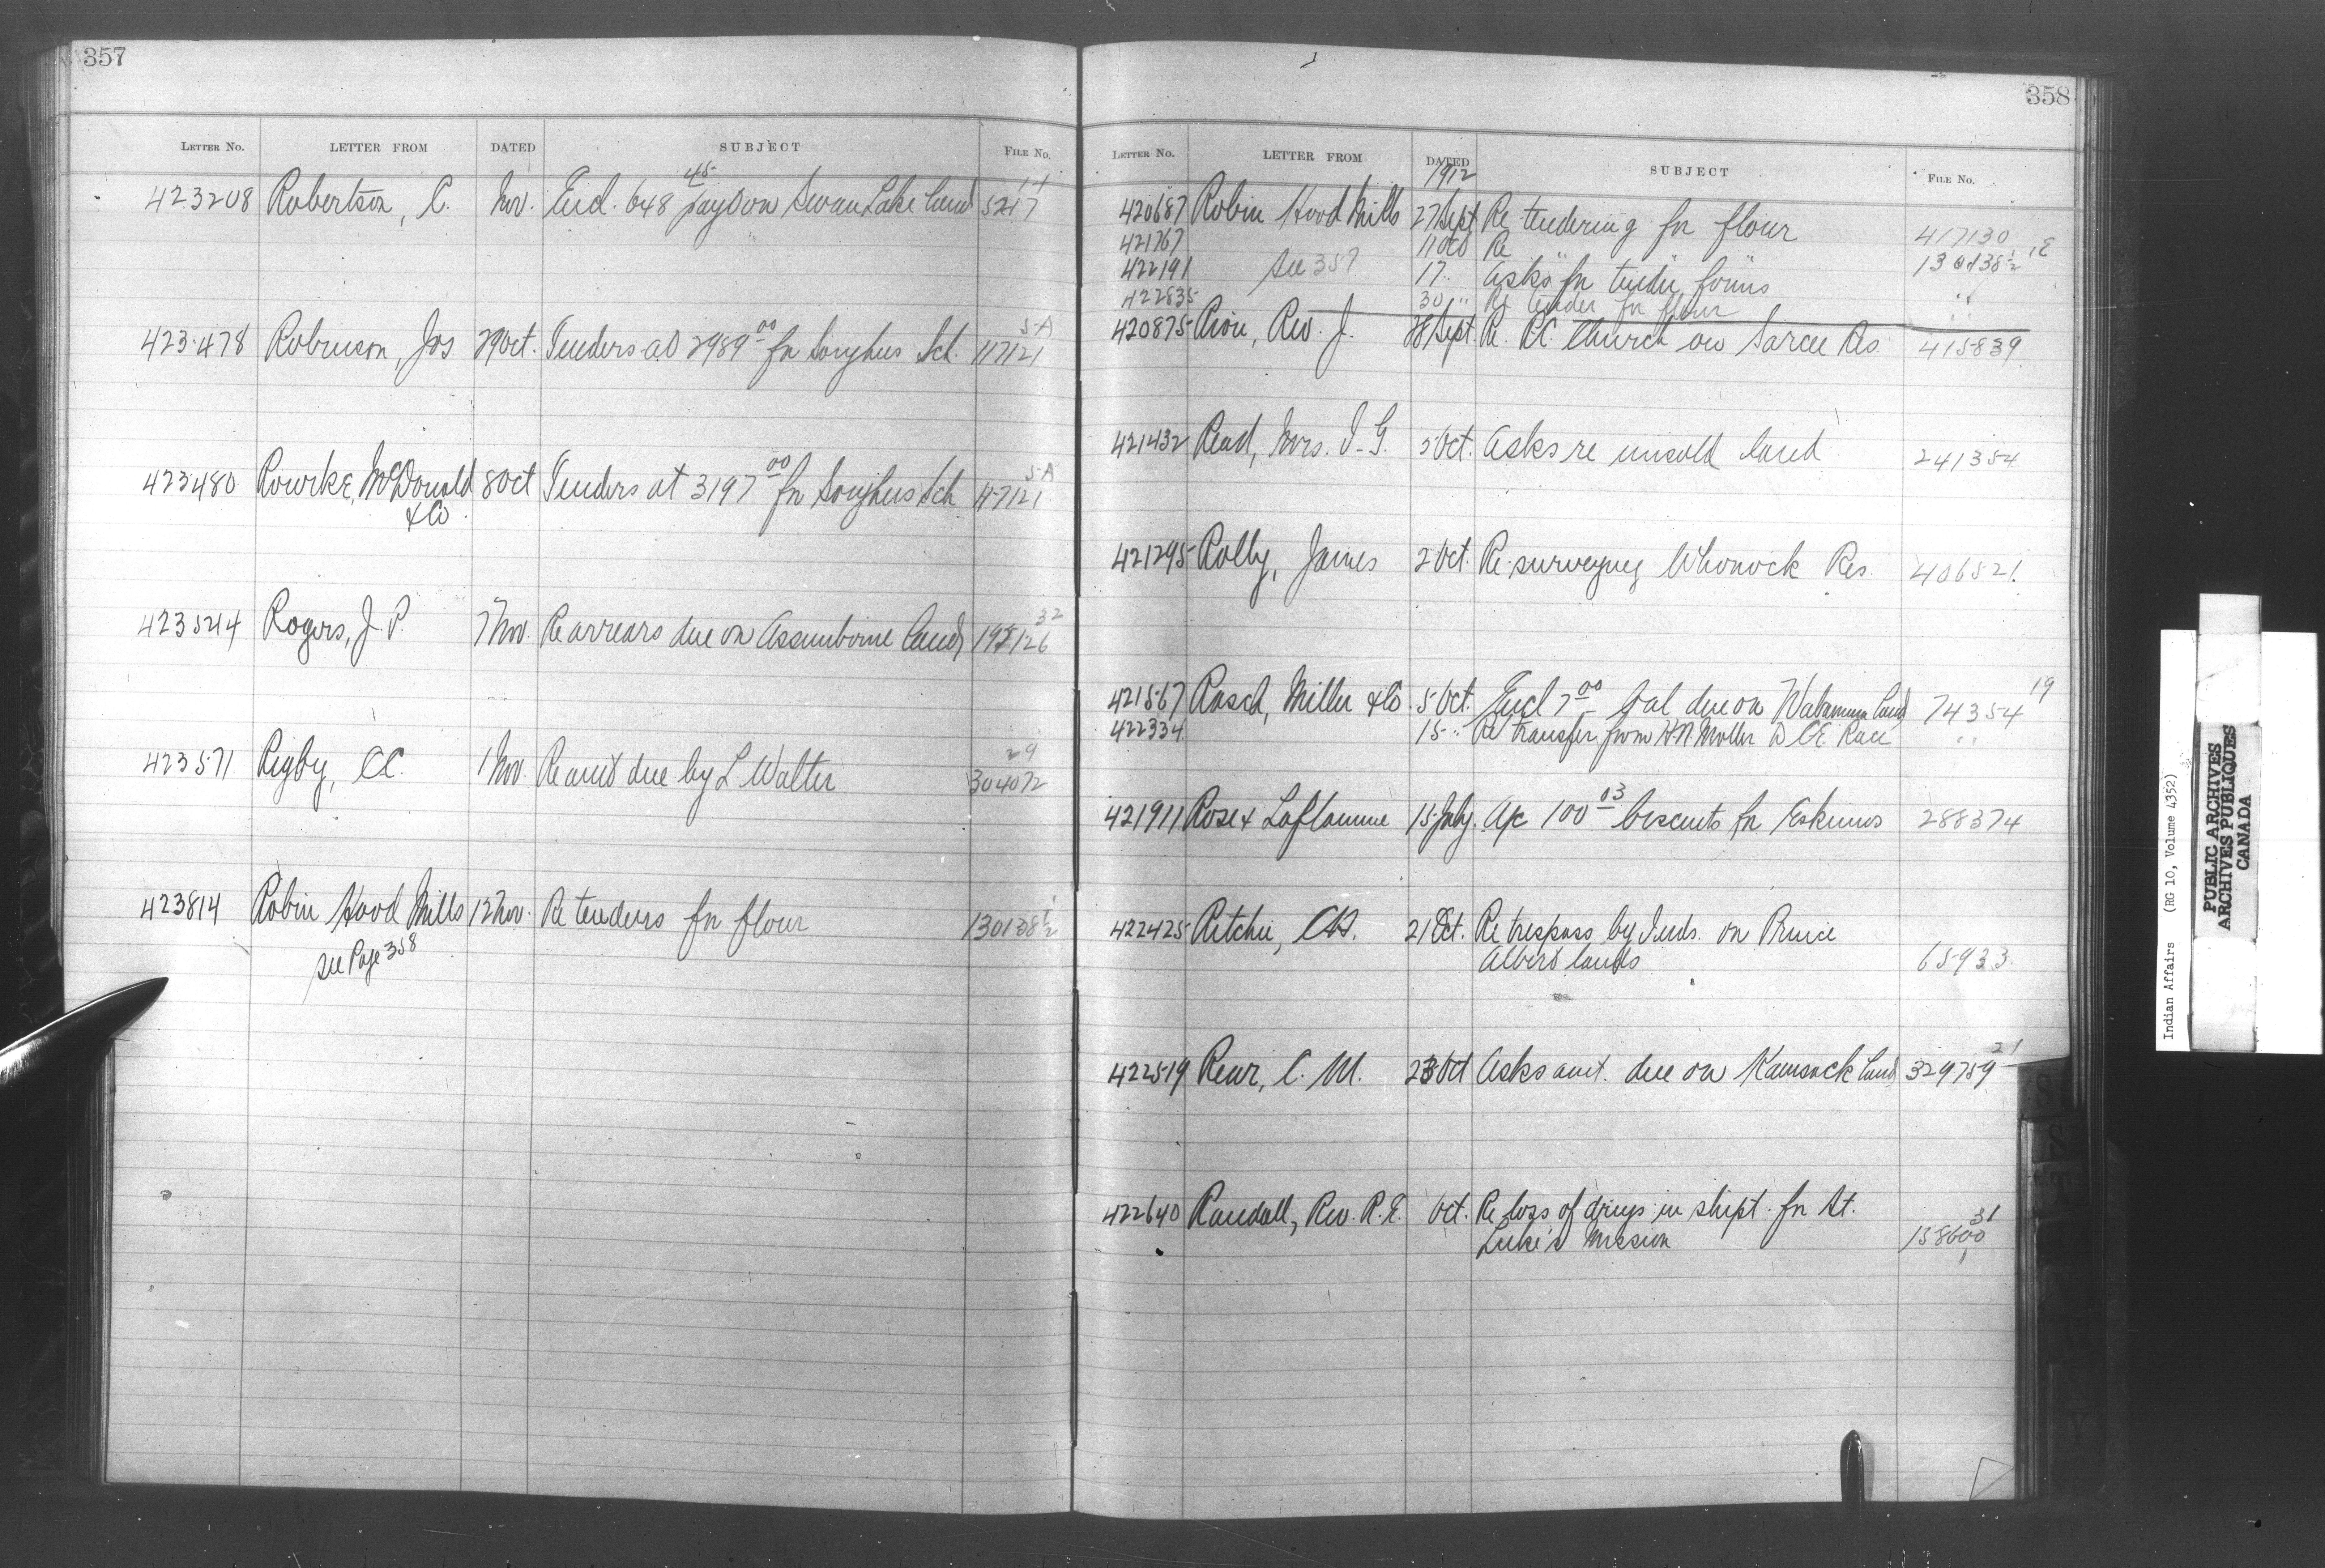 357
LETTER No. LETTER FROM DATED SUBJECT FILE No.
423208 Robertson, C. Nov. Encl. 648 45 payt on Swan Lake land 5217 11
423478 Robinson, Jos. 29 Oct. Tenders at 2989 00 fr Songhus Sch. 117121 5-A
423480 Rourke, McDonald 8 Oct Tenders at 3197 00 fr Songhus Sch 117121 5-A
& Co
423524 Rogers, J. P. 7 Nov. Re arrears due on Assiniboine land 195126 32
423571 Rigby, CC. 1 Nov. Re amt due by L Walter 304072 29
423814 Robin Hood Mills 12 Nov. Re tenders fr flour 130138 1/2
see Page 358
358
LETTER No. LETTER FROM DATED SUBJECT FILE No.
1912
420687 Robin Hood Mills 27 Sept Re tendering for flour 417130
421767 11 Oct Re " " 130138 1/2 E
422191 see 357 17 " Asks for tender forms "
422835 30 " Re tender for flour "
420875 Rion, Rev. J. 28 Sept. Re. R.C. Church on Sarcee Res. 415839
421432 Read, Mrs. I. G. 5 Oct. Asks re unsold land 241354
421295 Rolby, James 2 Oct. Re surveying Whonock Res. 406521
421567 Rasch, Miller & Co. 5 Oct. Encl 7 00 bal due on Wabamun land 74354 19
422334 15 " Re transfer from H.N. Moller to C.E. Race "
421911 Rose & Laflamme 15 July. A/c 100 03 biscuits fr Eskimos 288374
422425 Ritchie, 21 Oct. Re trespass by Inds. on Prince
Albert lands 65933
422519 Rear, C. M. 23 Oct Asks amt. due on Kamsack land 329759 21
422640 Randall, Rev. R. E. Oct. Re loss of drugs in shipt. fr St.
Luke's Mission 158600 31
Indian Affairs (RG 10, Volume 4352)
PUBLIC ARCHIVES
ARCHIVES PUBLIQUES
CANADA